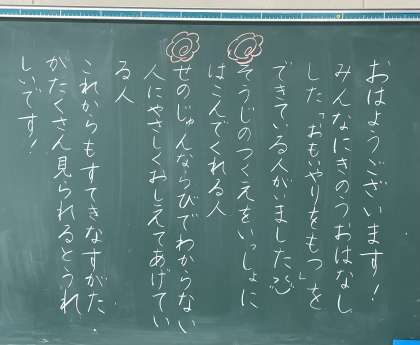 おはようございます!
みんなにきのうおはなし
した「おもいやりをもつ」を
できている人がいました
そうじのつくえをいっしょに
はこんでくれる人
せのじゅんならびでわからない
人にやさしくおしえてあげてい
る人
これからもすてきなすがた
がたくさん見られるとうれ
しいです!